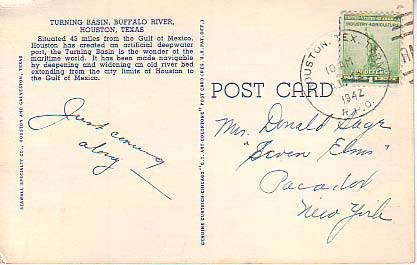 TURNING BASIN, BUFFALO RIVER,
HOUSTON, TEXAS
Situated 45 miles from the Gulf of Mexico.
Houston has created an artificial deepwater
port, the Turning Basin is the wonder of the
maritime world. It has been made navigable
by deepening and widening an old river bed
extending from the city limits of Houston to
the Gulf of Mexico.
SEAWALL SPECIALTY CO., HOUSTON AND GALVESTON, TEXAS
Just coming
along —
GENUINE CURTEICH-CHICAGO "C.T. ART-COLORTONE" POST CARD (REG. U.S. PAT. OFF.)
POST CARD
HOUSTON, TEX.
10
1942
INDUSTRY AGRICULTURE
FOR DEFENSE
Mr. Donald
"Seven Elms"
New York